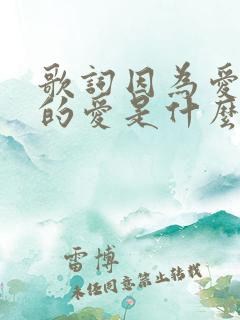 歌詞因為愛
的愛是什麼
雷博
未經同意禁止轉載